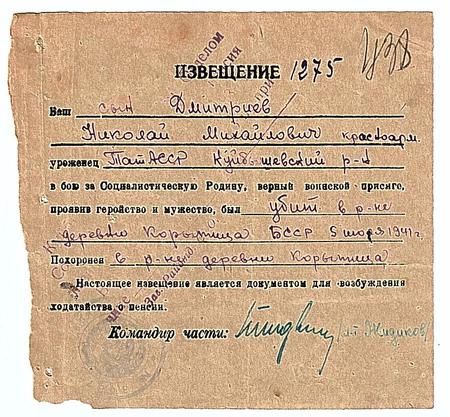 ИЗВЕЩЕНИЕ 1275
Ваш сын Дмитриев
Николай Михайлович красноарм.
уроженец ТатАССР Куйбышевский р-н
в бою за Социалистическую Родину, верный воинской присяге,
проявив геройство и мужество, был убит в р-не
деревни Корытница БССР 5 июля 1941 г.
Похоронен в р-не деревни Корытница
Настоящее извещение является документом для возбуждения
ходатайства о пенсии.
Командир части: